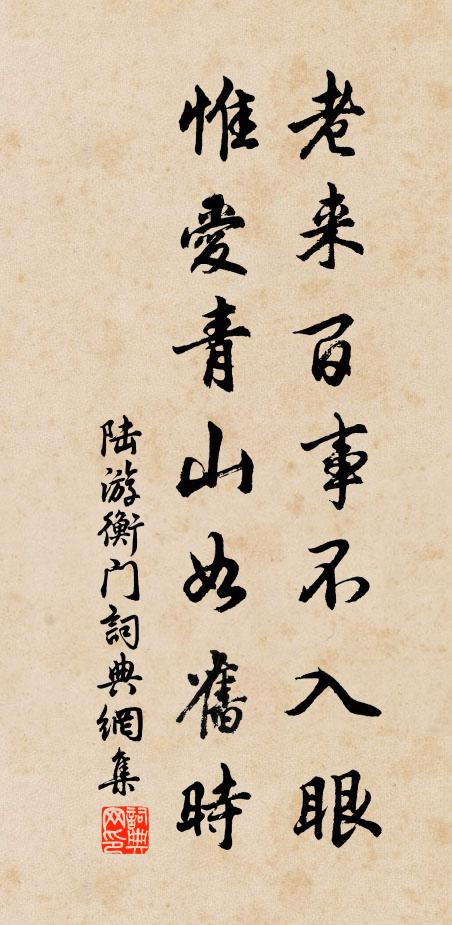 老来百事不入眼
惟愛青山如舊時
陆游衡门詞典網集
詞典网印